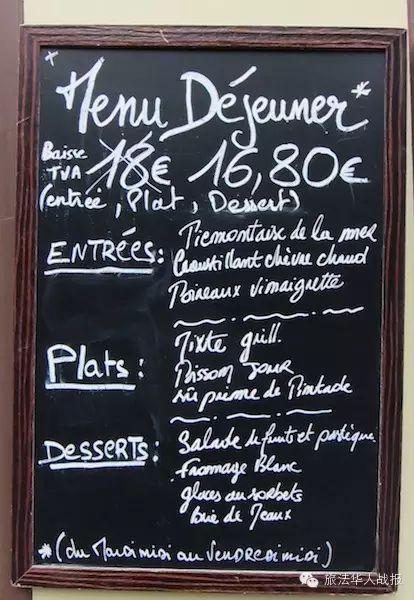 * Menu Déjeuner*
Baisse TVA 18€ 16,80€
(entrée, Plat, Dessert)
ENTRÉES: Piemontaise de la mer
Croustillant chèvre chaud
Poireaux vinaigrette
Plats: Mixte grill.
Poisson Jour
Suprême de Pintade
DESSERTS: Salade de fruits et pastèque
Fromage Blanc
glaces ou sorbets
Brie de Meaux
*(du Mardi midi au Vendredi midi)
旅法华人战报